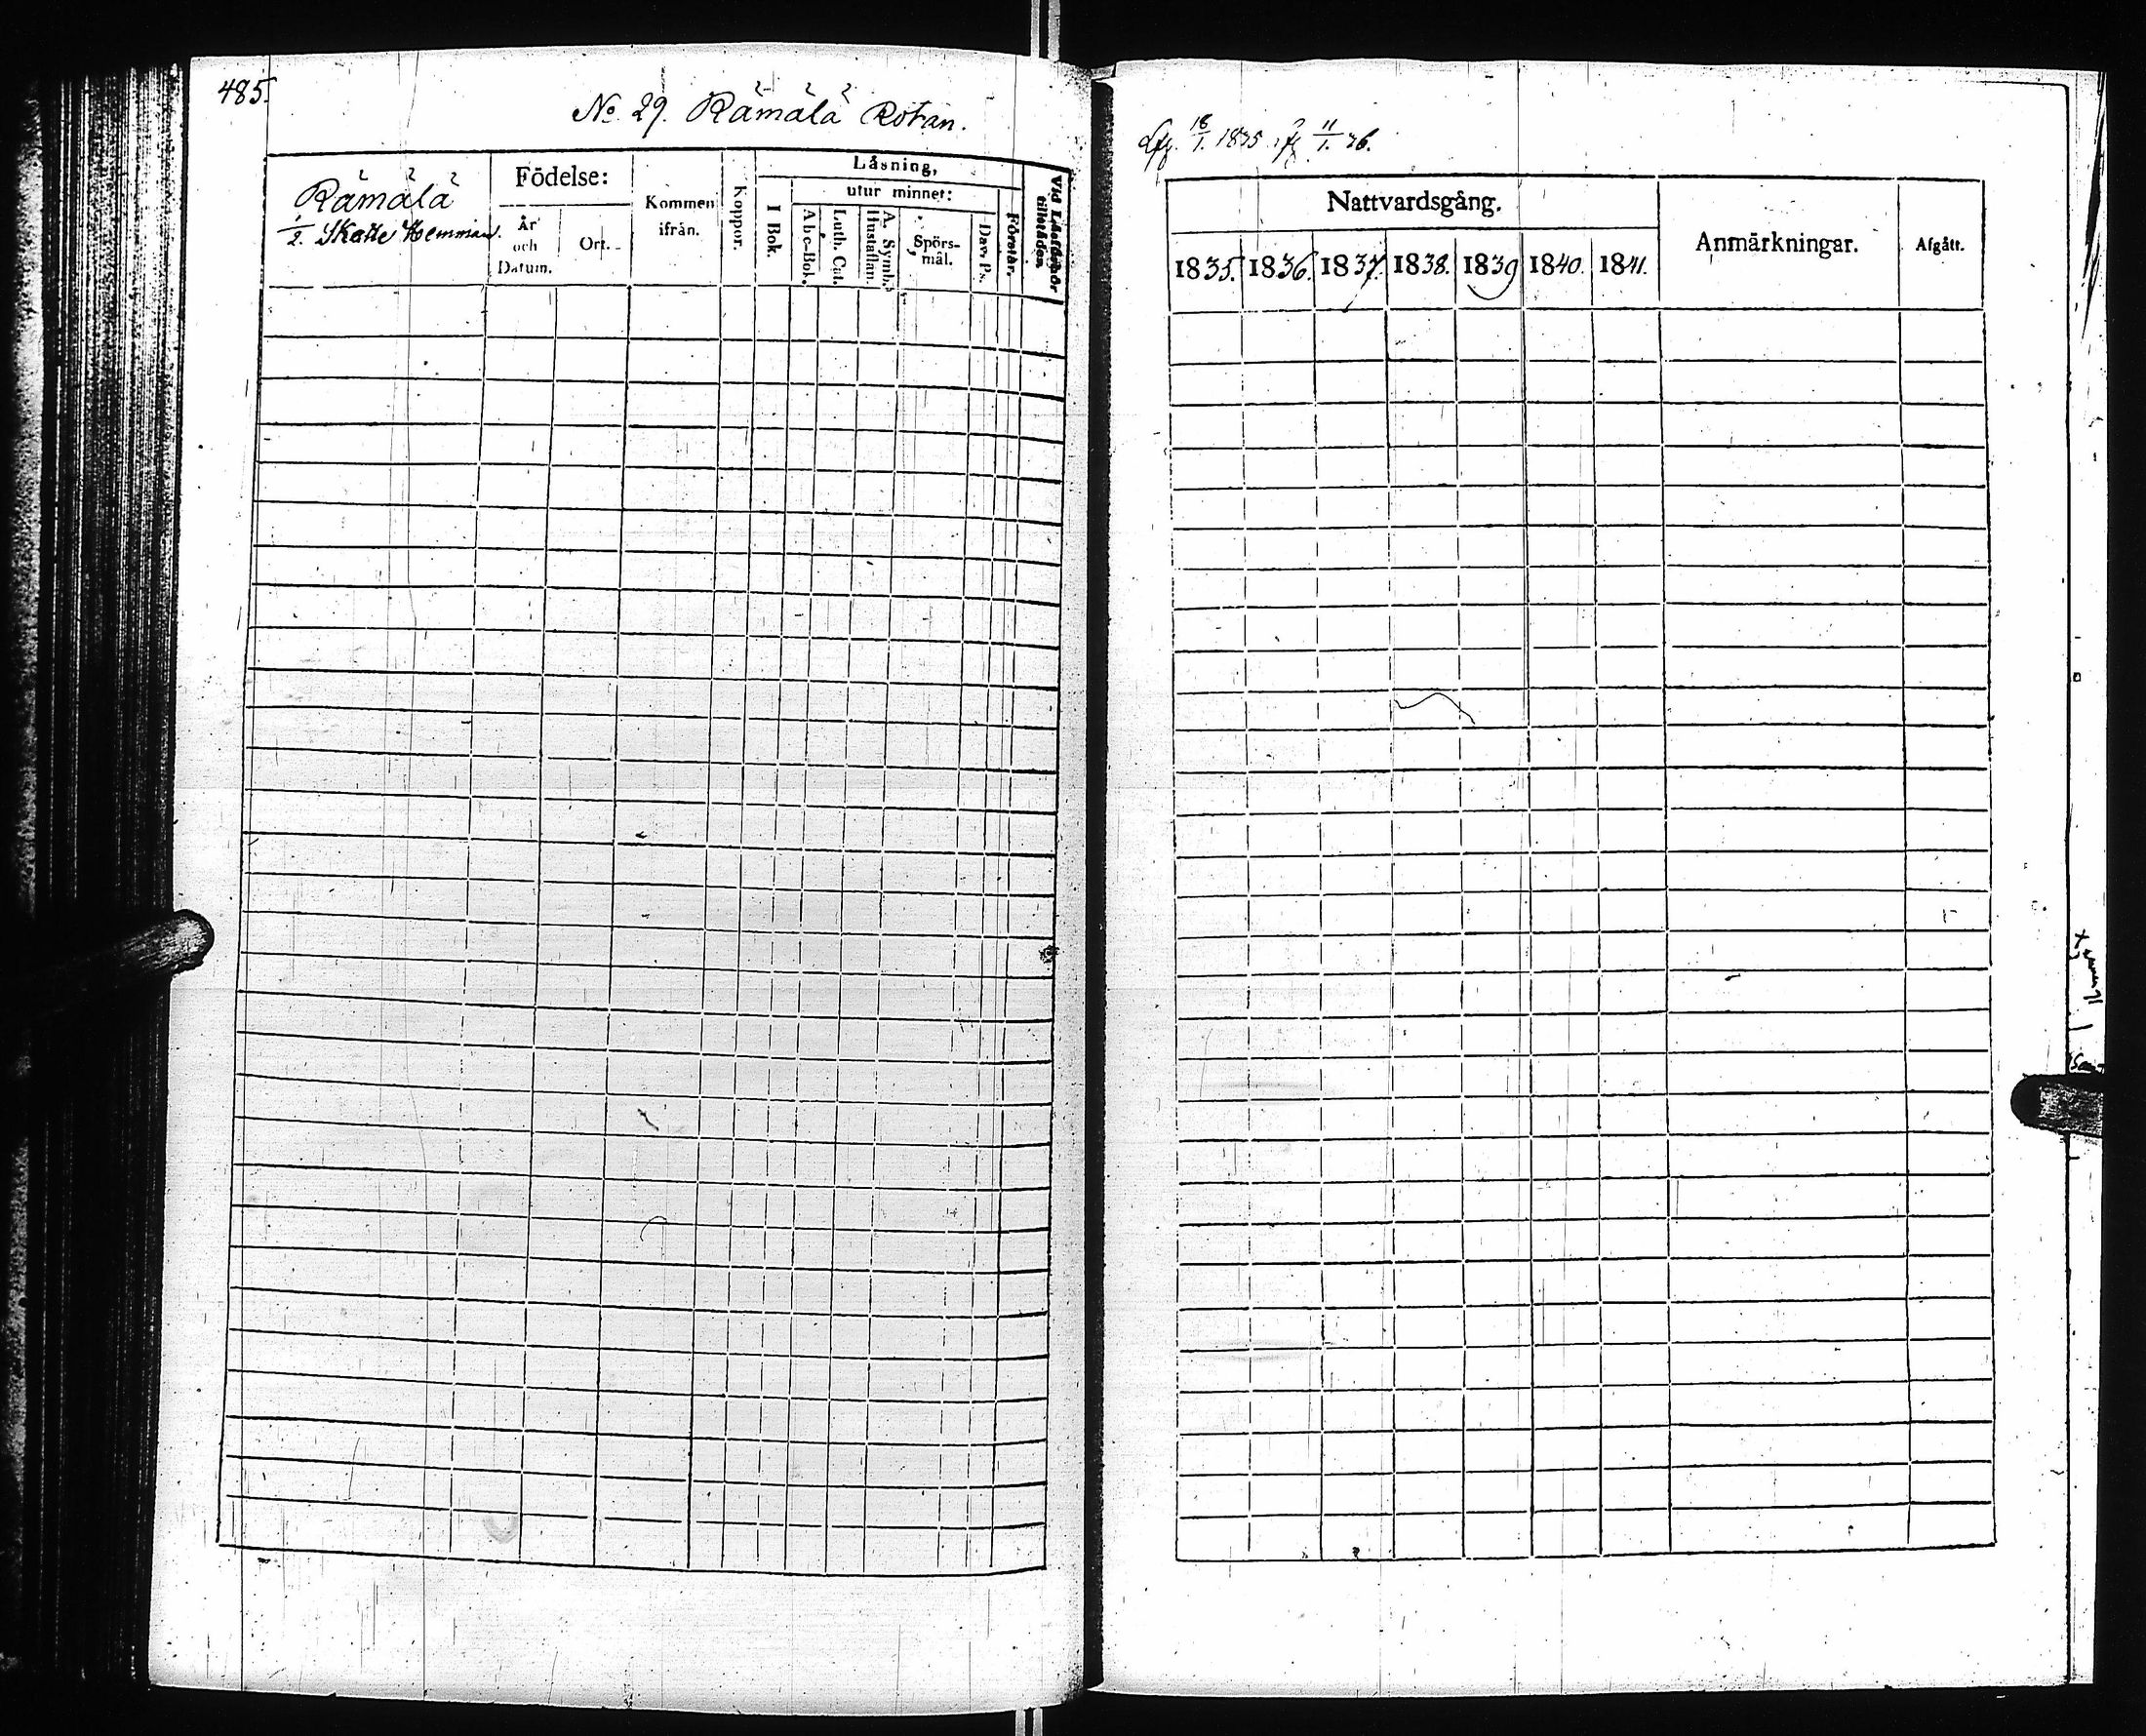 485.
No. 29. Rämälä Rotan.
Rämälä
1/2. Skatte Hemman.
Födelse:
År och Datum.
Ort.
Kommen ifrån.
Koppor.
Läsning,
I Bok.
utur minnet:
Abc-Bok.
Luth. Cat.
A. Symb. Hustaflan.
Spörsmål.
Dav. Ps.
Förstår.
Vid Läseförhör tillstädes.
18/1. 1835 11/1. 36.
Nattvardsgång.
1835. 1836. 1837. 1838. 1839 1840. 1841.
Anmärkningar.
Afgått.